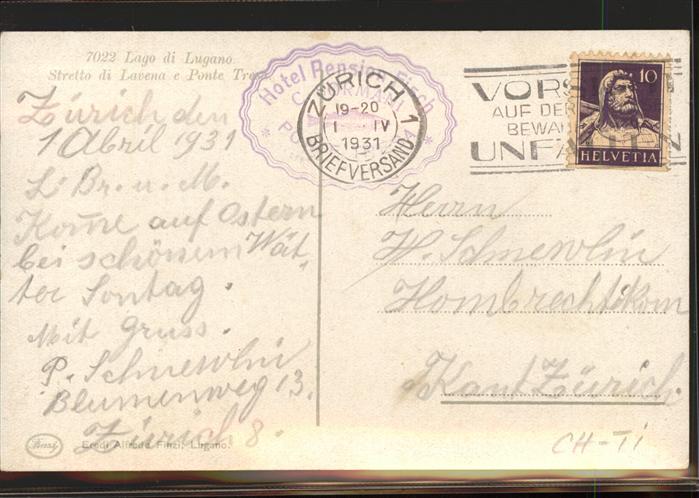 7022 Lago di Lugano
Stretto di Lavena e Ponte Tresa
Zürich den
1 Abril 1931
L. Br. u. M.
Kome auf Ostern
bei schönem Wät-
ter Sontag.
Mit Gruss.
P. Schnewlin
Blumenweg 13.
Zürich 8.
Eredi Alfredo Finzi, Lugano.
Hotel Pension Fisch
ZÜRICH 1
19-20
1 IV
1931
BRIEFVERSAND
VORS
AUF DER
BEWA
UNFA EN
10
HELVETIA
Herrn
H. Schnewlin
Hombrechtikon
Kant Zürich.
CH-TI